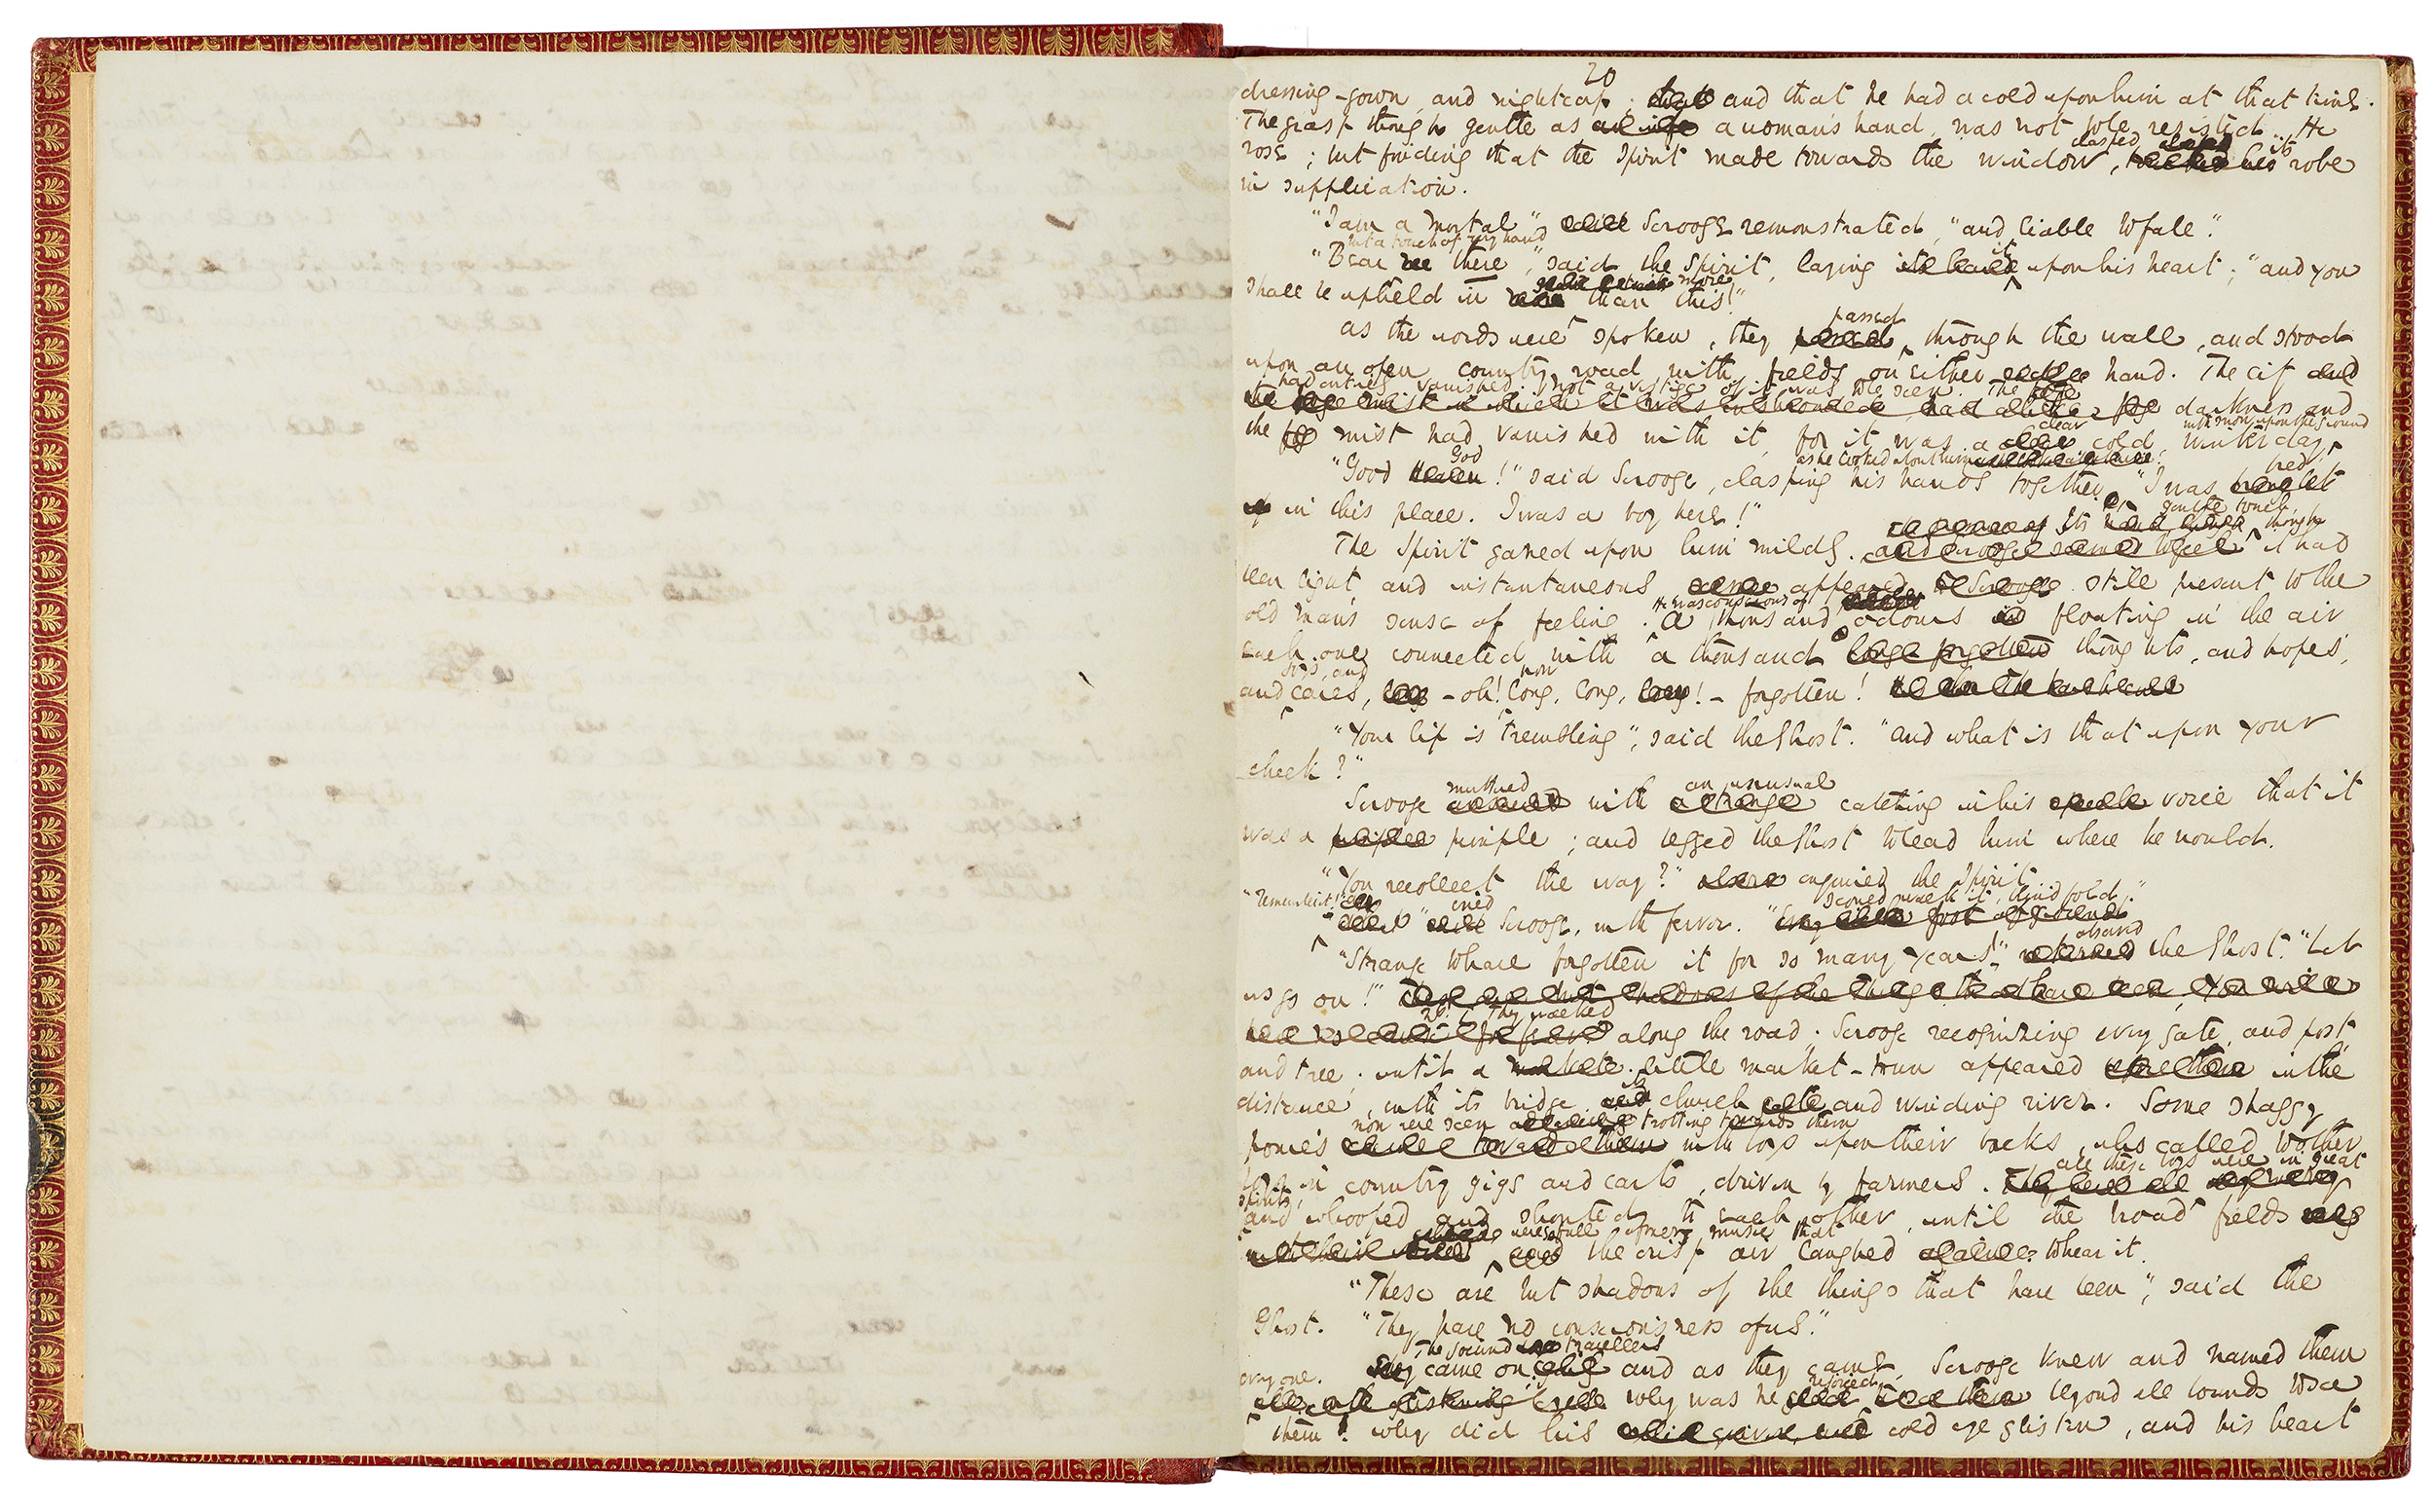 20
dressing-gown, and nightcap; and that he had a cold upon him at that time.
The grasp though gentle as a woman's hand, was not to be resisted. He
clasped its
rose; but finding that the Spirit made towards the window, robe
in supplication.
"I am a mortal," Scrooge remonstrated, "and liable to fall."
but a touch of my hand it
"Bear there," said the Spirit, laying upon his heart; "and you
more
shall be upheld in than this!"
passed
As the words were spoken, they through the wall, and stood
upon an open country road, with fields on either hand. The city
had entirely vanished. Not a vestige of it was to be seen. The
darkness and
clear with snow upon the ground
the mist had vanished with it, for it was a cold, winter day,
God as he looked about him bred
"Good Heaven!" said Scrooge, clasping his hands together, "I was
in this place. I was a boy here!"
gentle touch,
Its though
The Spirit gazed upon him mildly. it had
been light and instantaneous, appeared still present to the
He was conscious of
old man's sense of feeling. a thousand odours floating in the air
each one connected with a thousand thoughts, and hopes,
joys, and
and cares, - oh! long, long, ! - forgotten!
"Your lip is trembling", said the Ghost. "and what is that upon your
cheek?"
muttered an unusual
Scrooge with catching in his voice that it
was a pimple; and begged the Ghost to lead him where he would.
"You recollect the way?" enquired the Spirit.
"Remember it!" cried I could walk it, blindfold."
Scrooge, with fervor.
observed
"Strange to have forgotten it for so many years!" returned the Ghost. "Let
us go on!" These are but shadows of the things that have been. You will
They walked
along the road; Scrooge recognizing every gate, and post,
and tree; until a little market-town appeared in the
its
distance, with its bridge, church and winding river. Some shaggy
now were seen trotting towards them
ponies with boys upon their backs, who called to other
all these boys were in great
boys in country gigs and carts, driven by farmers.
spirits,
and whooped and shouted to each other, until the broad fields
were so full of merry music that
the crisp air laughed to hear it.
"These are but shadows of the things that have been", said the
Ghost. "They have no consciousness of us."
The jocund travellers
came on and as they came, Scrooge knew and named them
every one. rejoiced
why was he beyond all bounds to see
them! why did his cold eye glisten, and his heart